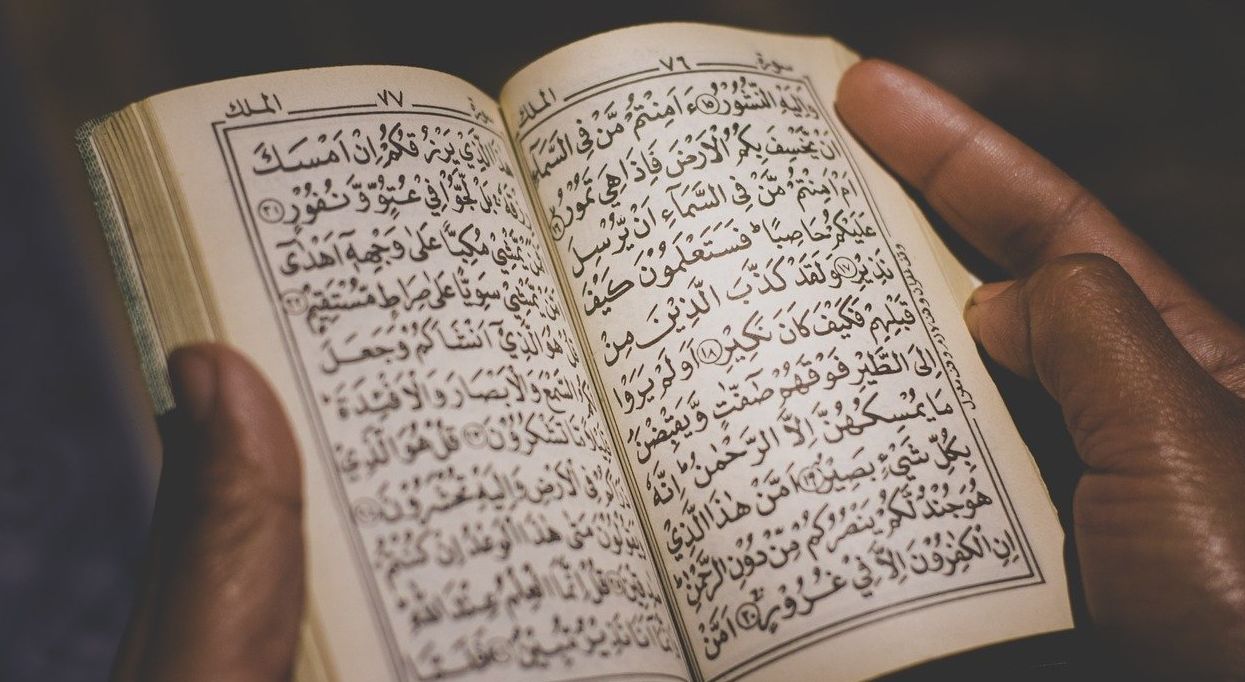 سورة ٧٦ الملك
وَاِلَيْهِ النُّشُوْرُ ١٥ ءَاَمِنْتُمْ مَّنْ فِى السَّمَآءِ
اَنْ يَّخْسِفَ بِكُمُ الْاَرْضَ فَاِذَا هِىَ تَمُوْرُ ١٦
اَمْ اَمِنْتُمْ مَّنْ فِى السَّمَآءِ اَنْ يُّرْسِلَ
عَلَيْكُمْ حَاصِبًا ؕ فَسَتَعْلَمُوْنَ كَيْفَ
نَذِيْرِ ١٧ وَلَقَدْ كَذَّبَ الَّذِيْنَ مِنْ
قَبْلِهِمْ فَكَيْفَ كَانَ نَكِيْرِ ١٨ اَوَلَمْ يَرَوْا
اِلَى الطَّيْرِ فَوْقَهُمْ صٰٓفّٰتٍ وَّيَقْبِضْنَ
مَا يُمْسِكُهُنَّ اِلَّا الرَّحْمٰنُ ؕ اِنَّهٗ
بِكُلِّ شَىْءٍۭ بَصِيْرٌ ١٩ اَمَّنْ هٰذَا الَّذِىْ
هُوَ جُنْدٌ لَّكُمْ يَنْصُرُكُمْ مِّنْ دُوْنِ الرَّحْمٰنِ ؕ
اِنِ الْكٰفِرُوْنَ اِلَّا فِىْ غُرُوْرٍ ٢٠ اَمَّنْ
سورة ٧٧ الملك
هٰذَا الَّذِىْ يَرْزُقُكُمْ اِنْ اَمْسَكَ
رِزْقَهٗ ۚ بَلْ لَّجُّوْا فِىْ عُتُوٍّ وَّنُفُوْرٍ ٢١
اَفَمَنْ يَّمْشِىْ مُكِبًّا عَلٰى وَجْهِهٖٓ اَهْدٰٓى
اَمَّنْ يَّمْشِىْ سَوِيًّا عَلٰى صِرَاطٍ مُّسْتَقِيْمٍ ٢٢
قُلْ هُوَ الَّذِىْٓ اَنْشَاَكُمْ وَجَعَلَ
لَكُمُ السَّمْعَ وَالْاَبْصَارَ وَالْاَفْئِدَةَ ؕ
قَلِيْلًا مَّا تَشْكُرُوْنَ ٢٣ قُلْ هُوَ الَّذِىْ
ذَرَاَكُمْ فِى الْاَرْضِ وَاِلَيْهِ تُحْشَرُوْنَ ٢٤
وَيَقُوْلُوْنَ مَتٰى هٰذَا الْوَعْدُ اِنْ كُنْتُمْ
صٰدِقِيْنَ ٢٥ قُلْ اِنَّمَا الْعِلْمُ عِنْدَ اللّٰهِ
وَاِنَّمَآ اَنَا نَذِيْرٌ مُّبِيْنٌ ٢٦ فَلَمَّا